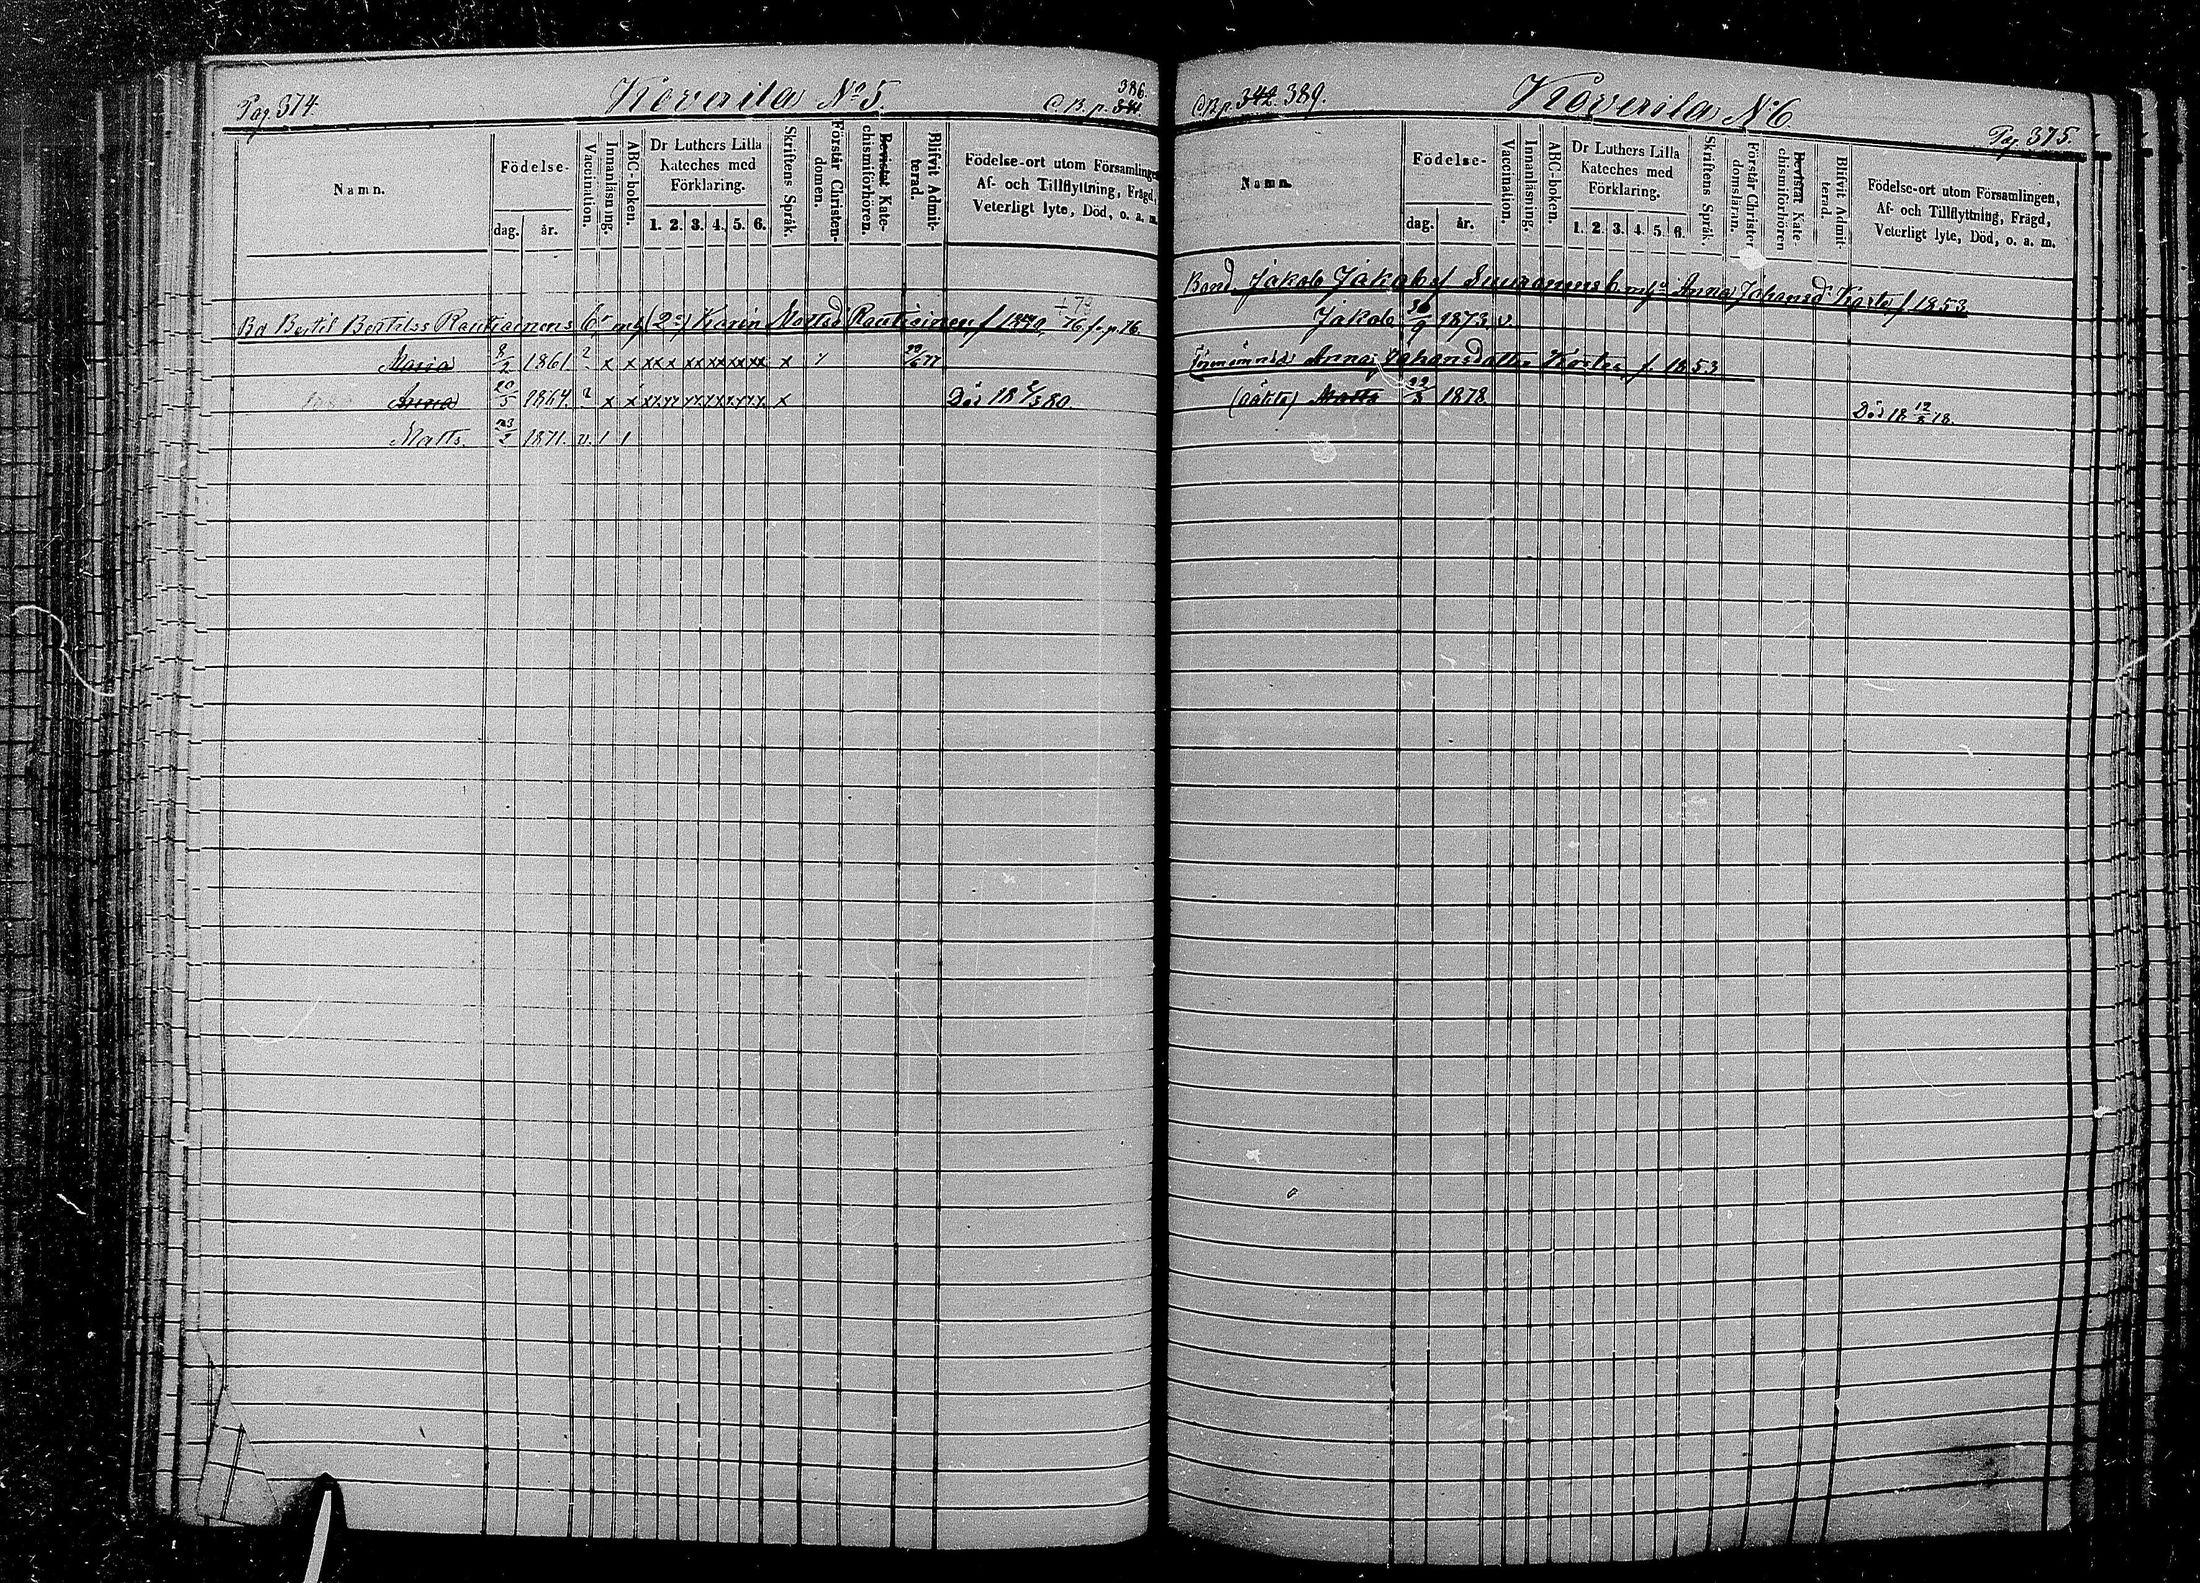 Pag 374. Koverila No 5. 386. C.B.p. 341.
Namn.
Födelse-
dag. år.
Vaccination.
Innanläsning.
ABC-boken.
Dr Luthers Lilla
Kateches med
Förklaring.
1. 2. 3. 4. 5. 6.
Skriftens Språk.
Förstår Christen-
domen.
Bevistat Kate-
chismiförhören.
Blifvit Admit-
terad.
Födelse-ort utom Församlingen,
Af- och Tillflyttning, Frägd,
Veterligt lyte, Död, o. a. m.
Bd Bertil Bertilss Rautiainens br m h (2a) Karin Mattsd Rautiainen f 1840
Maria 8/2 1861 ? x x xx x xx xx xx xx x
Anna 20/5 1864. ? x x x Död 18 2/3 80.
Matts. 23/2 1871. v. 1 1
C.B.p 342. 389. Koverila No 6 Pag 375.
Namn.
Födelse-
dag. år.
Vaccination.
Innanläsning.
ABC-boken.
Dr Luthers Lilla
Kateches med
Förklaring.
1. 2. 3. 4. 5. 6.
Skriftens Språk.
Förstår Christen
domsläran.
Bevistat Kate
chismiförhören
Blifvit Admit-
terad.
Födelse-ort utom Församlingen,
Af- och Tillflyttning, Frägd,
Veterligt lyte, Död, o. a. m.
Bond Jakob Jakobsf b m Anna Johansd f. 1853
Jakob 1873. v.
Anna Johansdotter f. 1853
(oäkta) Matts 22/3 1878 Död 18 12/8 78.